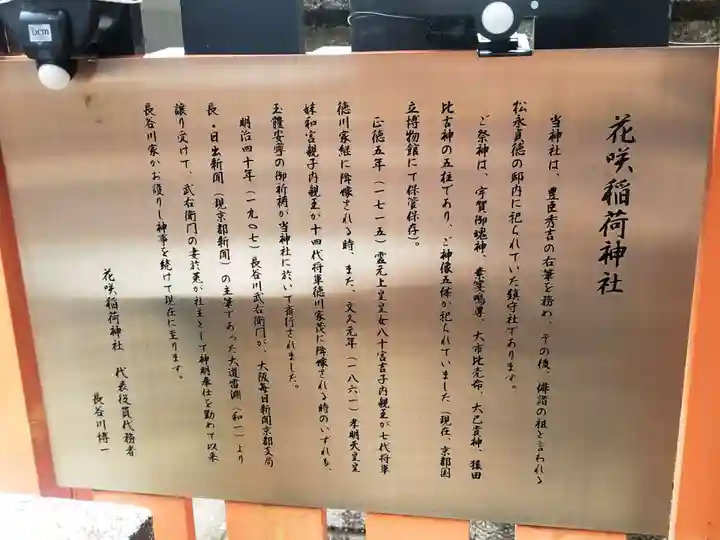 花咲稲荷神社
当神社は、豊臣秀吉の右筆を務め、その後、俳諧の祖と言われる
松永貞徳の邸内に祀られていた鎮守社であります。
ご祭神は、宇賀御魂神、素箋嗚尊、大市比売命、大己貴神、猿田
比古神の五柱であり、ご神像五体が祀られていました(現在、京都国
立博物館にて保管保存)。
正徳五年(一七一五)霊元上皇皇女八十宮吉子内親王が七代将軍
徳川家継に降嫁される時、また、文久元年(一八六一)孝明天皇皇
妹和宮親子内親王が十四代将軍徳川家茂に降嫁される時のいずれも、
玉體安寧の御祈祷が当神社に於いて斎行されました。
明治四十年(一九〇七)長谷川武右衛門が、大阪毎日新聞京都支局
長・日出新聞(現京都新聞)の主筆であった大道雷淵(和一)より
譲り受けて、武右衛門の妻於莬が社主として神明奉仕を勤めて以来
長谷川家がお護りし神事を続けて現在に至ります。
花咲稲荷神社 代表役員代務者
長谷川博一
DCM